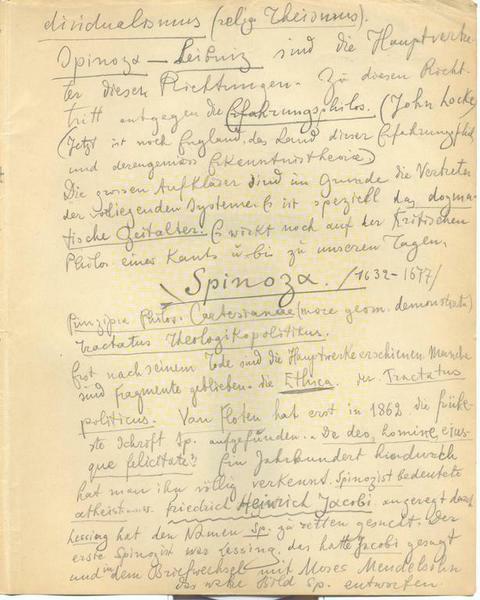 dividualismus (relig. Theismus).
Spinoza – Leibniz sind die Hauptvertre-
ter diesen Richtungen. Zu diesen Richt.
tritt entgegen die Erfahrungsphilos. (John Locke)
(Jetzt ist noch England das Land dieser Erfahrungsphil.
und Erkenntnistheorie)
Die grossen Aufklärer sind im Grunde die Vertreter
der vorliegenden Systeme. Es ist speziell das dogma-
tische Zeitalter. Es wirkt noch auf der Kritischen
Philos. eines Kants u. bis zu unseren Tagen.
Spinoza. /1632–1677/
Prinzipia Philos. Cartesianae (more geom. demonstrata)
Tractatus Theologikopolitikus.
Erst nach seinem Tode sind die Hauptwerke erschienen. Manche
sind Fragmente geblieben. die Ethica. der Tractatus
politicus. Van Floten hat erst in 1862 die frühe-
ste Schrift Sp. aufgefunden. „De deo, homine, eius-
que felicitate". Ein Jahrhundert hindurch
hat man ihn völlig verkannt. Spinozist bedeutete
atheistismus. Friedrich Heinrich Jacobi angeregt durch
Lessing hat den Namen Sp. zu retten gesucht. Der
erste Spinozist was Lessing, das hatte Jacobi gesagt
und in dem Briefwechsel mit Moses Mendelsohn
das wahre Bild Sp. entworfen